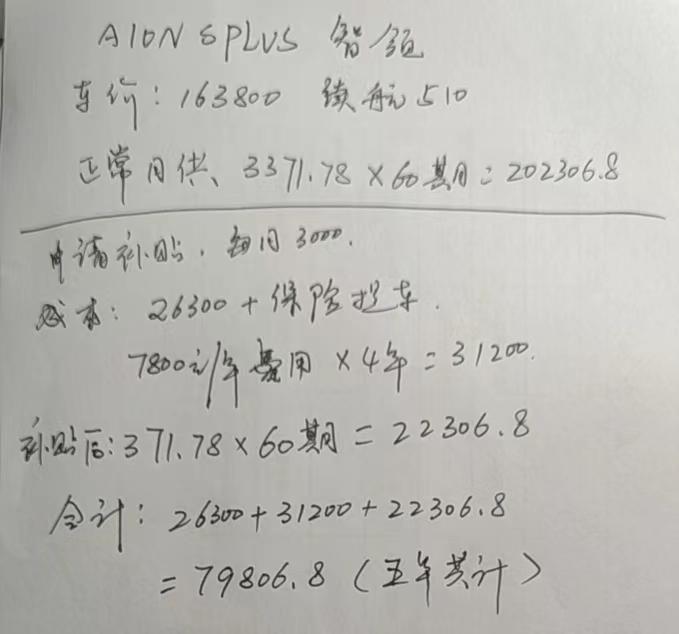 AION SPLUS 智领
车价：163800 续航510
正常月供、3371.78×60期=202306.8
申请补贴，每月3000.
成本：26300+保险提车.
7800元/年费用×4年=31200.
补贴后:371.78×60期=22306.8
合计：26300+31200+22306.8
=79806.8（五年共计）